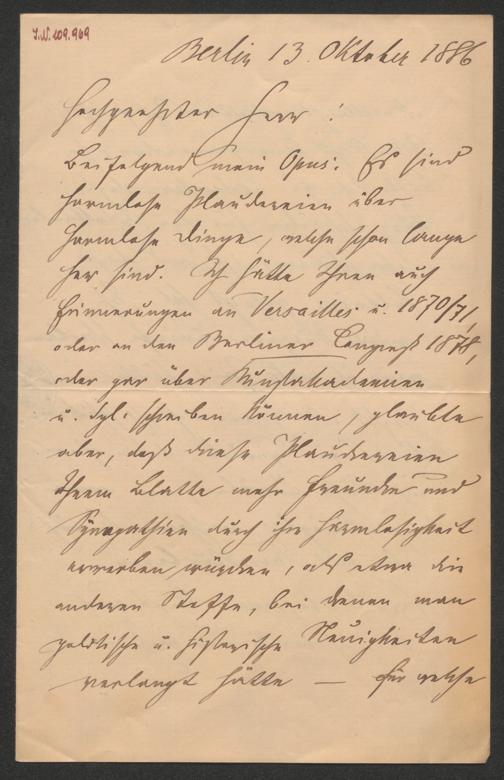 I.N. 109.969
Berlin 13. Oktober 1886
Hochgeehrter Herr!
Beifolgend mein Opus. Es sind
harmlose Plaudereien über
harmlose Dinge, welche schon lange
her sind. Ich hätte Ihnen auch
Erinnerungen an Versailles u. 1870/71,
oder an den Berliner Congreß 1878,
oder gar über Kunstakademien
u. dgl. schreiben können, glaubte
aber, daß diese Plaudereien
Ihrem Blatte mehr Freunde und
Sympathien durch ihre Harmlosigkeit
erwerben würden, als etwa die
anderen Stoffe, bei denen man
politische u. historische Neuigkeiten
verlangt hätte — für welche